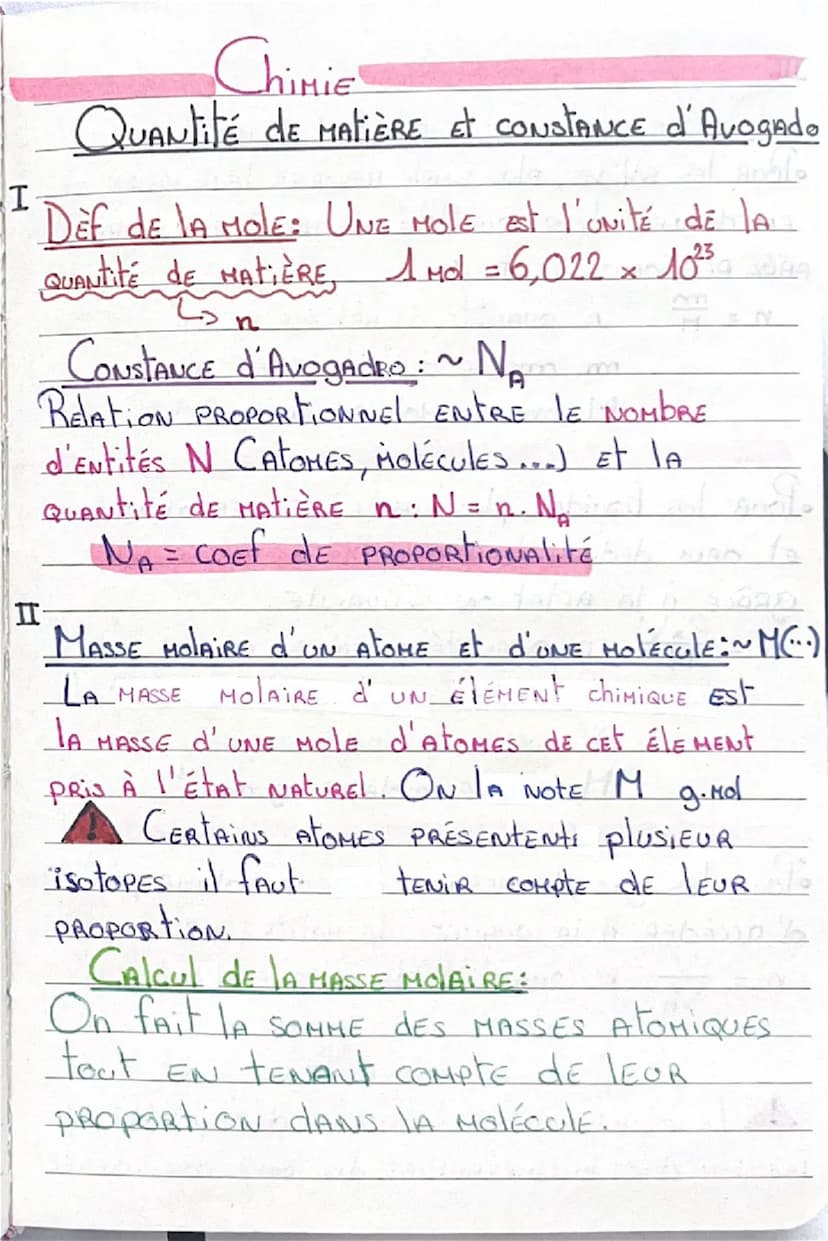 Chimie
Quantité de matière et constance d'Avogado
I
Dèf de la mole: Une mole est l'unité de la
quantité de matière, 1 mol = 6,022 × 10²³
↳ n
Constance d'Avogadro : ~ N_A
Relation proportionnel entre le nombre
d'entités N (atomes, molécules...) et la
quantité de matière n : N = n. N_A
N_A = coef de proportionalité
II
Masse molaire d'un atome et d'une molécule: ~ M(..)
La masse molaire d'un élément chimique est
la masse d'une mole d'atomes de cet élement
pris à l'état naturel. On la note M g.mol
! Certains atomes présentent plusieur
isotopes il faut tenir compte de leur
proportion.
Calcul de la masse molaire:
On fait la somme des masses atomiques
tout en tenant compte de leur
proportion dans la molécule.